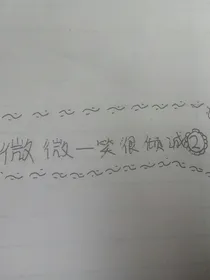 微微一笑很倾城②